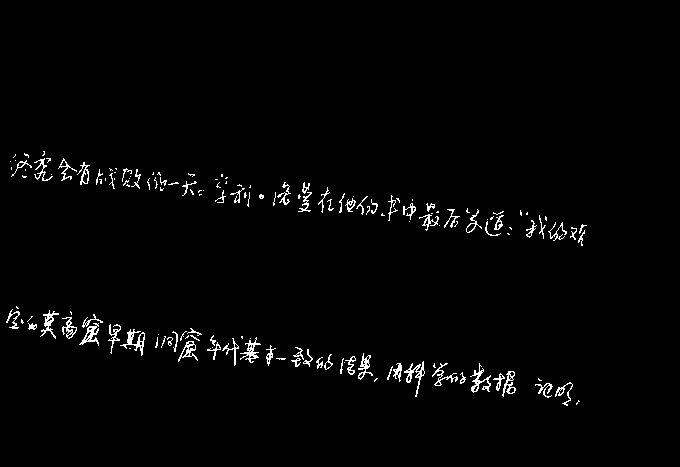 终究会有成效的一天。亨利。洛曼在他的书中最后写道：“我的观
定的莫高窟早期洞窟年代基本一致的结果，用科学的数据证明，